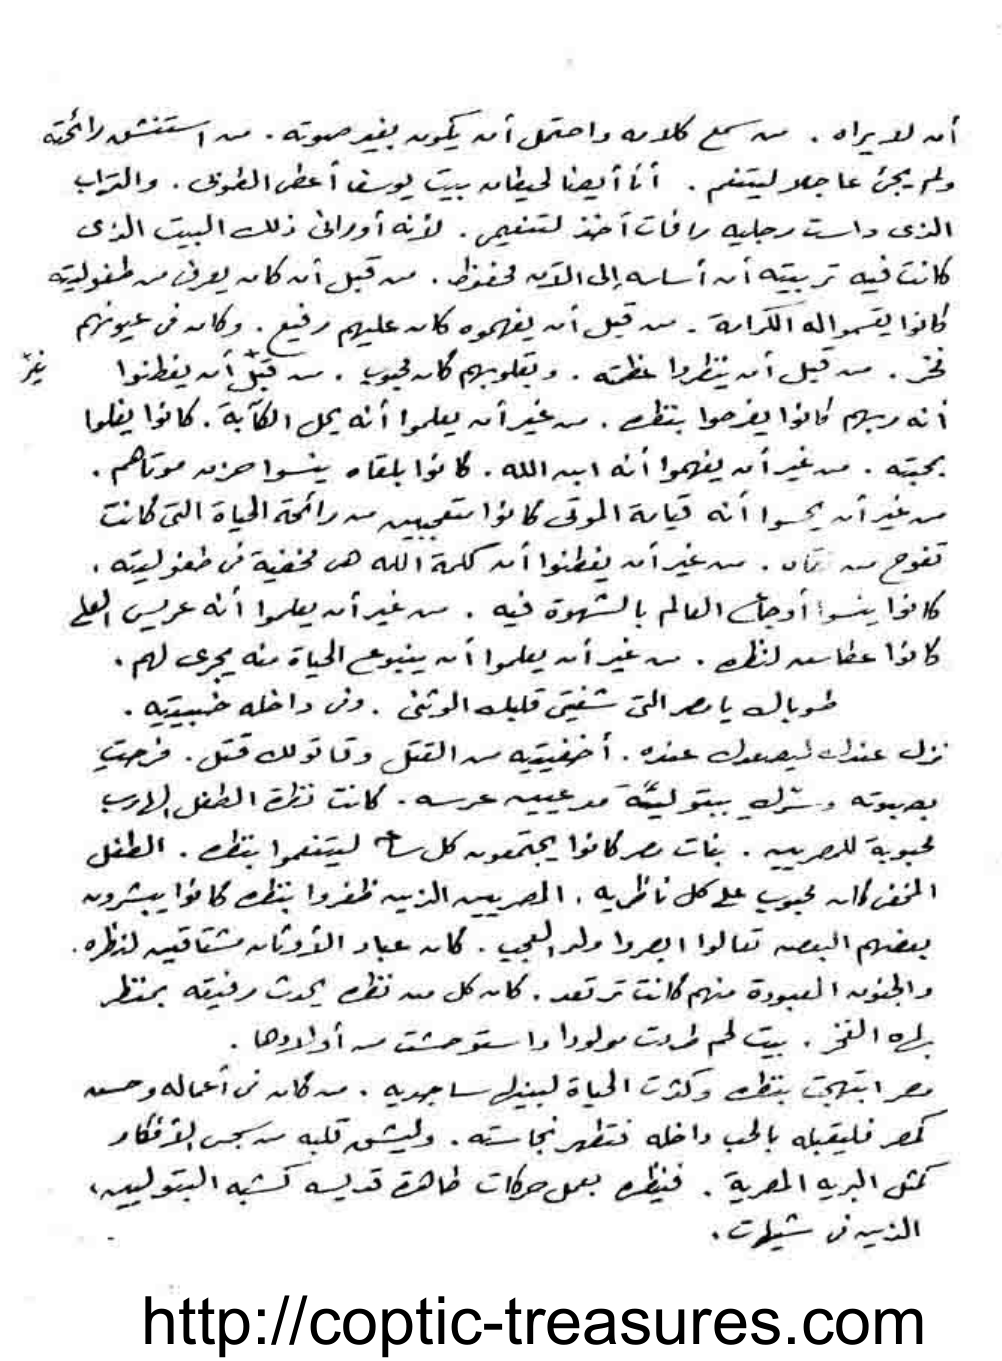 أن لا يراه . من سمع كلامه واحتمل أن يكون بغير صوته . من استنشق رائحته
ولم يجئ عاجلا ليتنعم . أنا أيضا لحيطان بيت يوسف أعطى الطوبى . والتراب
الذى داست رجليه رافات آخذ لتنعيمى . لأنه أورانى ذلك البيت الذى
كانت فيه تربيته أن أساسه إلى الآن محفوظ . من قبل أن كان يعرف من طفوليته
كانوا يقسموا له الكرامة . من قبل أن يفهموه كان عليهم رفيع . وكان فى عيونهم
فخر . من قبل أن ينظروا عظمته . وبقلوبهم كان محبوب . من قبل أن يفطنوا
أنه ربهم كانوا يفرحوا بنظره . من غير أن يعلموا أنه يحل الكآبة . كانوا يغلوا
بمحبته . من غير أن يفهموا أنه ابن الله . كانوا بلقاه ينسوا حزن موتاهم .
من غير أن يحسوا أنه قيامة الموتى كانوا متعجبين من رائحة الحياة التى كانت
تفوح من . من غير أن يفطنوا أن كلمة الله هى مخفية فى طفوليته .
كانوا ينسوا أوجاع العالم بالشهوة فيه . من غير أن يعلموا أنه عريس العلى
كانوا عطاش لنظره . من غير أن يعلموا أن ينبوع الحياة منه يجرى لهم .
طوباك يا مصر التى شفيتى قلبك الوثنى . وفى داخله خبيتيه .
نزل عندك ليصعدك عنده . أخفيتيه من القتل وقاتولك قتل . فرحتِ
بصبوته وسرّك ببتوليّة مدعيين عرسه . كانت نظرة الطفل الهارب
محبوبة للمصريين . بنات مصر كانوا يجتمعون كل ساعة ليتنعموا بنظره . الطفل
المخفى كان محبوب على كل ناظريه . المصريين الذين ظفروا بنظره كانوا يبشرون
بعضهم البعض تعالوا ابصروا ولد العجب . كان عباد الأوثان مشتاقين لنظره .
والجنون المعبودة منهم كانت ترتعد . كان كل من نظره يحدث رفيقه بمنظر
بهاه الفخر . بيت لحم طردت مولودا واستوحشت من أولادها .
مصر ابتهجت بنظره وكثرت الحياة لبنيها ساجديه . من كان فى أعماله وحسه
كمصر فليقبله بالحب داخله فتطهر نجاسته . وليشق قلبه من سجس الأفكار
كمثل البريه المصرية . فينظره بعمل حركات طاهرة قديسه كشبه البتوليين
الذين فى شيهات .
http://coptic-treasures.com